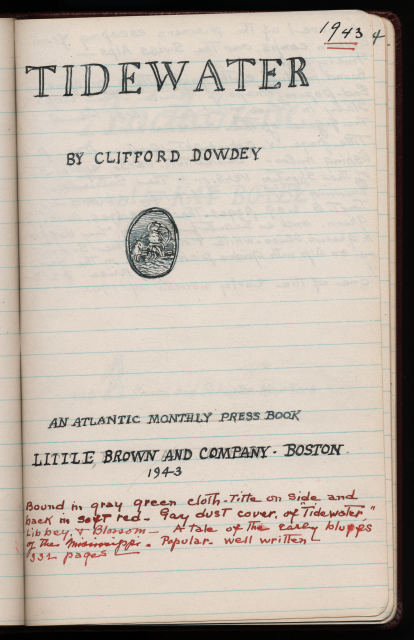 1943 4.
TIDEWATER
BY CLIFFORD DOWDEY
AN ATLANTIC MONTHLY PRESS BOOK
LITTLE, BROWN AND COMPANY · BOSTON
1943
Bound in gray green cloth - Title on side and
back in soft red - Gay dust cover, of "Tidewater"
Libbey, & Blossom - A tale of the early bluffs
of the Mississippi - Popular - well written -
332 pages